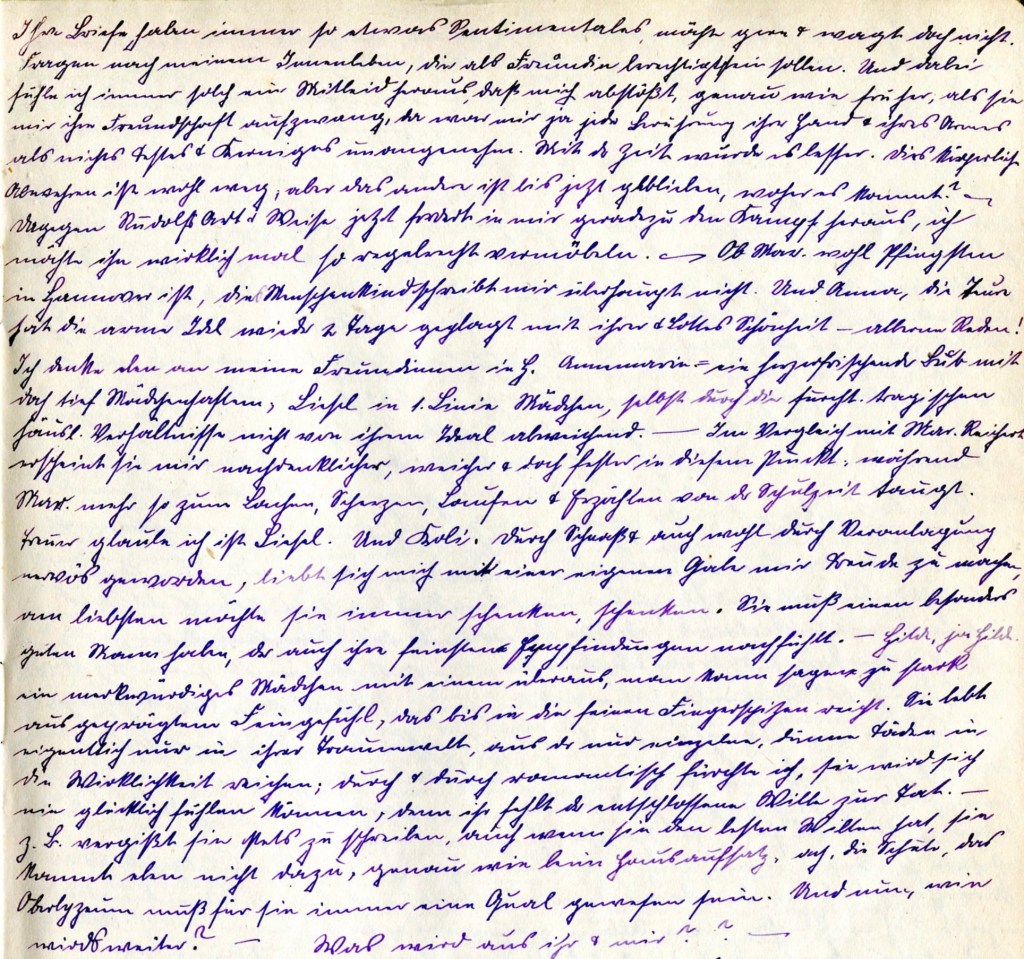 Ihre Briefe haben immer so etwas Sentimentales, möchte gern & wagt doch nicht.
Fragen nach meinem Innenleben, die als Freundin berechtigt sein sollen. Und dabei
fühle ich immer solch ein Mitleid heraus, daß mich abstößt, genau wie früher, als sie
mir ihre Freundschaft aufzwang, da war mir ja jede Berührung ihrer Hand & ihres Armes
als nichts Festes & Kerniges unangenehm. Mit de Zeit wurde es besser. Dies körperliche
Abwehren ist wohl weg, aber das andere ist bis jetzt geblieben, woher es kommt? —
Dagegen Rudolfs Art & Weise jetzt fordert in mir geradezu den Kampf heraus, ich
möchte ihn wirklich mal so regelrecht vermöbeln. — Ob Mar. wohl Pfingsten
in Hannover ist, dies Menschenkind schreibt mir überhaupt nicht. Und Anna, die Teure
hat die arme Idel wieder 2 Tage geplagt mit ihrer & Lottes Schönheit — alberne Reden!
Ich denke eben an meine Freundinnen in H. Annemarie = ein herzerfrischender Bub mit
doch tief Mädchenhaftem, Liesel in 1. Linie Mädchen, selbst durch die furcht. tragischen
häusl. Verhältnisse nicht von ihrem Ideal abweichend. — Im Vergleich mit Mar. Reichert
erscheint sie mir nachdenklicher, weicher & doch fester in diesem Punkt, während
Mar. mehr so zum Lachen, Scherzen, Laufen & Erzählen von de Schulzeit taugt.
Treuer glaube ich ist Liesel. Und Koli. Durch & auch wohl durch Veranlagung
nervös geworden, liebt sich mich mit einer eigenen Gabe mir Freude zu machen,
am liebsten möchte sie immer schenken, schenken. Sie muß einen besonders
guten Mann haben, de auch ihre feinsten Empfindungen nachfühlt. — Hilde, ja Hilde.
ein merkwürdiges Mädchen mit einem überaus, man kann sagen zu stark
ausgeprägtem Feingefühl, das bis in die feinen Fingerspitzen reicht. Sie lebt
eigentlich nur in ihrer Traumwelt, aus de nur einzelne, dünne Fäden in
die Wirklichkeit reichen; durch & durch romantisch fürchte ich, sie wird sich
nie glücklich fühlen können, denn ihr fehlt de entschlossene Wille zur Tat. —
z. B. vergißt sie stets zu schreiben, auch wenn sie den besten Willen hat, sie
kommt eben nicht dazu, genau wie beim Hausaufsatz, ach, die Schule, das
Oberlyzeum muß für sie immer eine Qual gewesen sein. Und nun, wie
wirds weiter? — Was wird aus ihr & mir? ? —